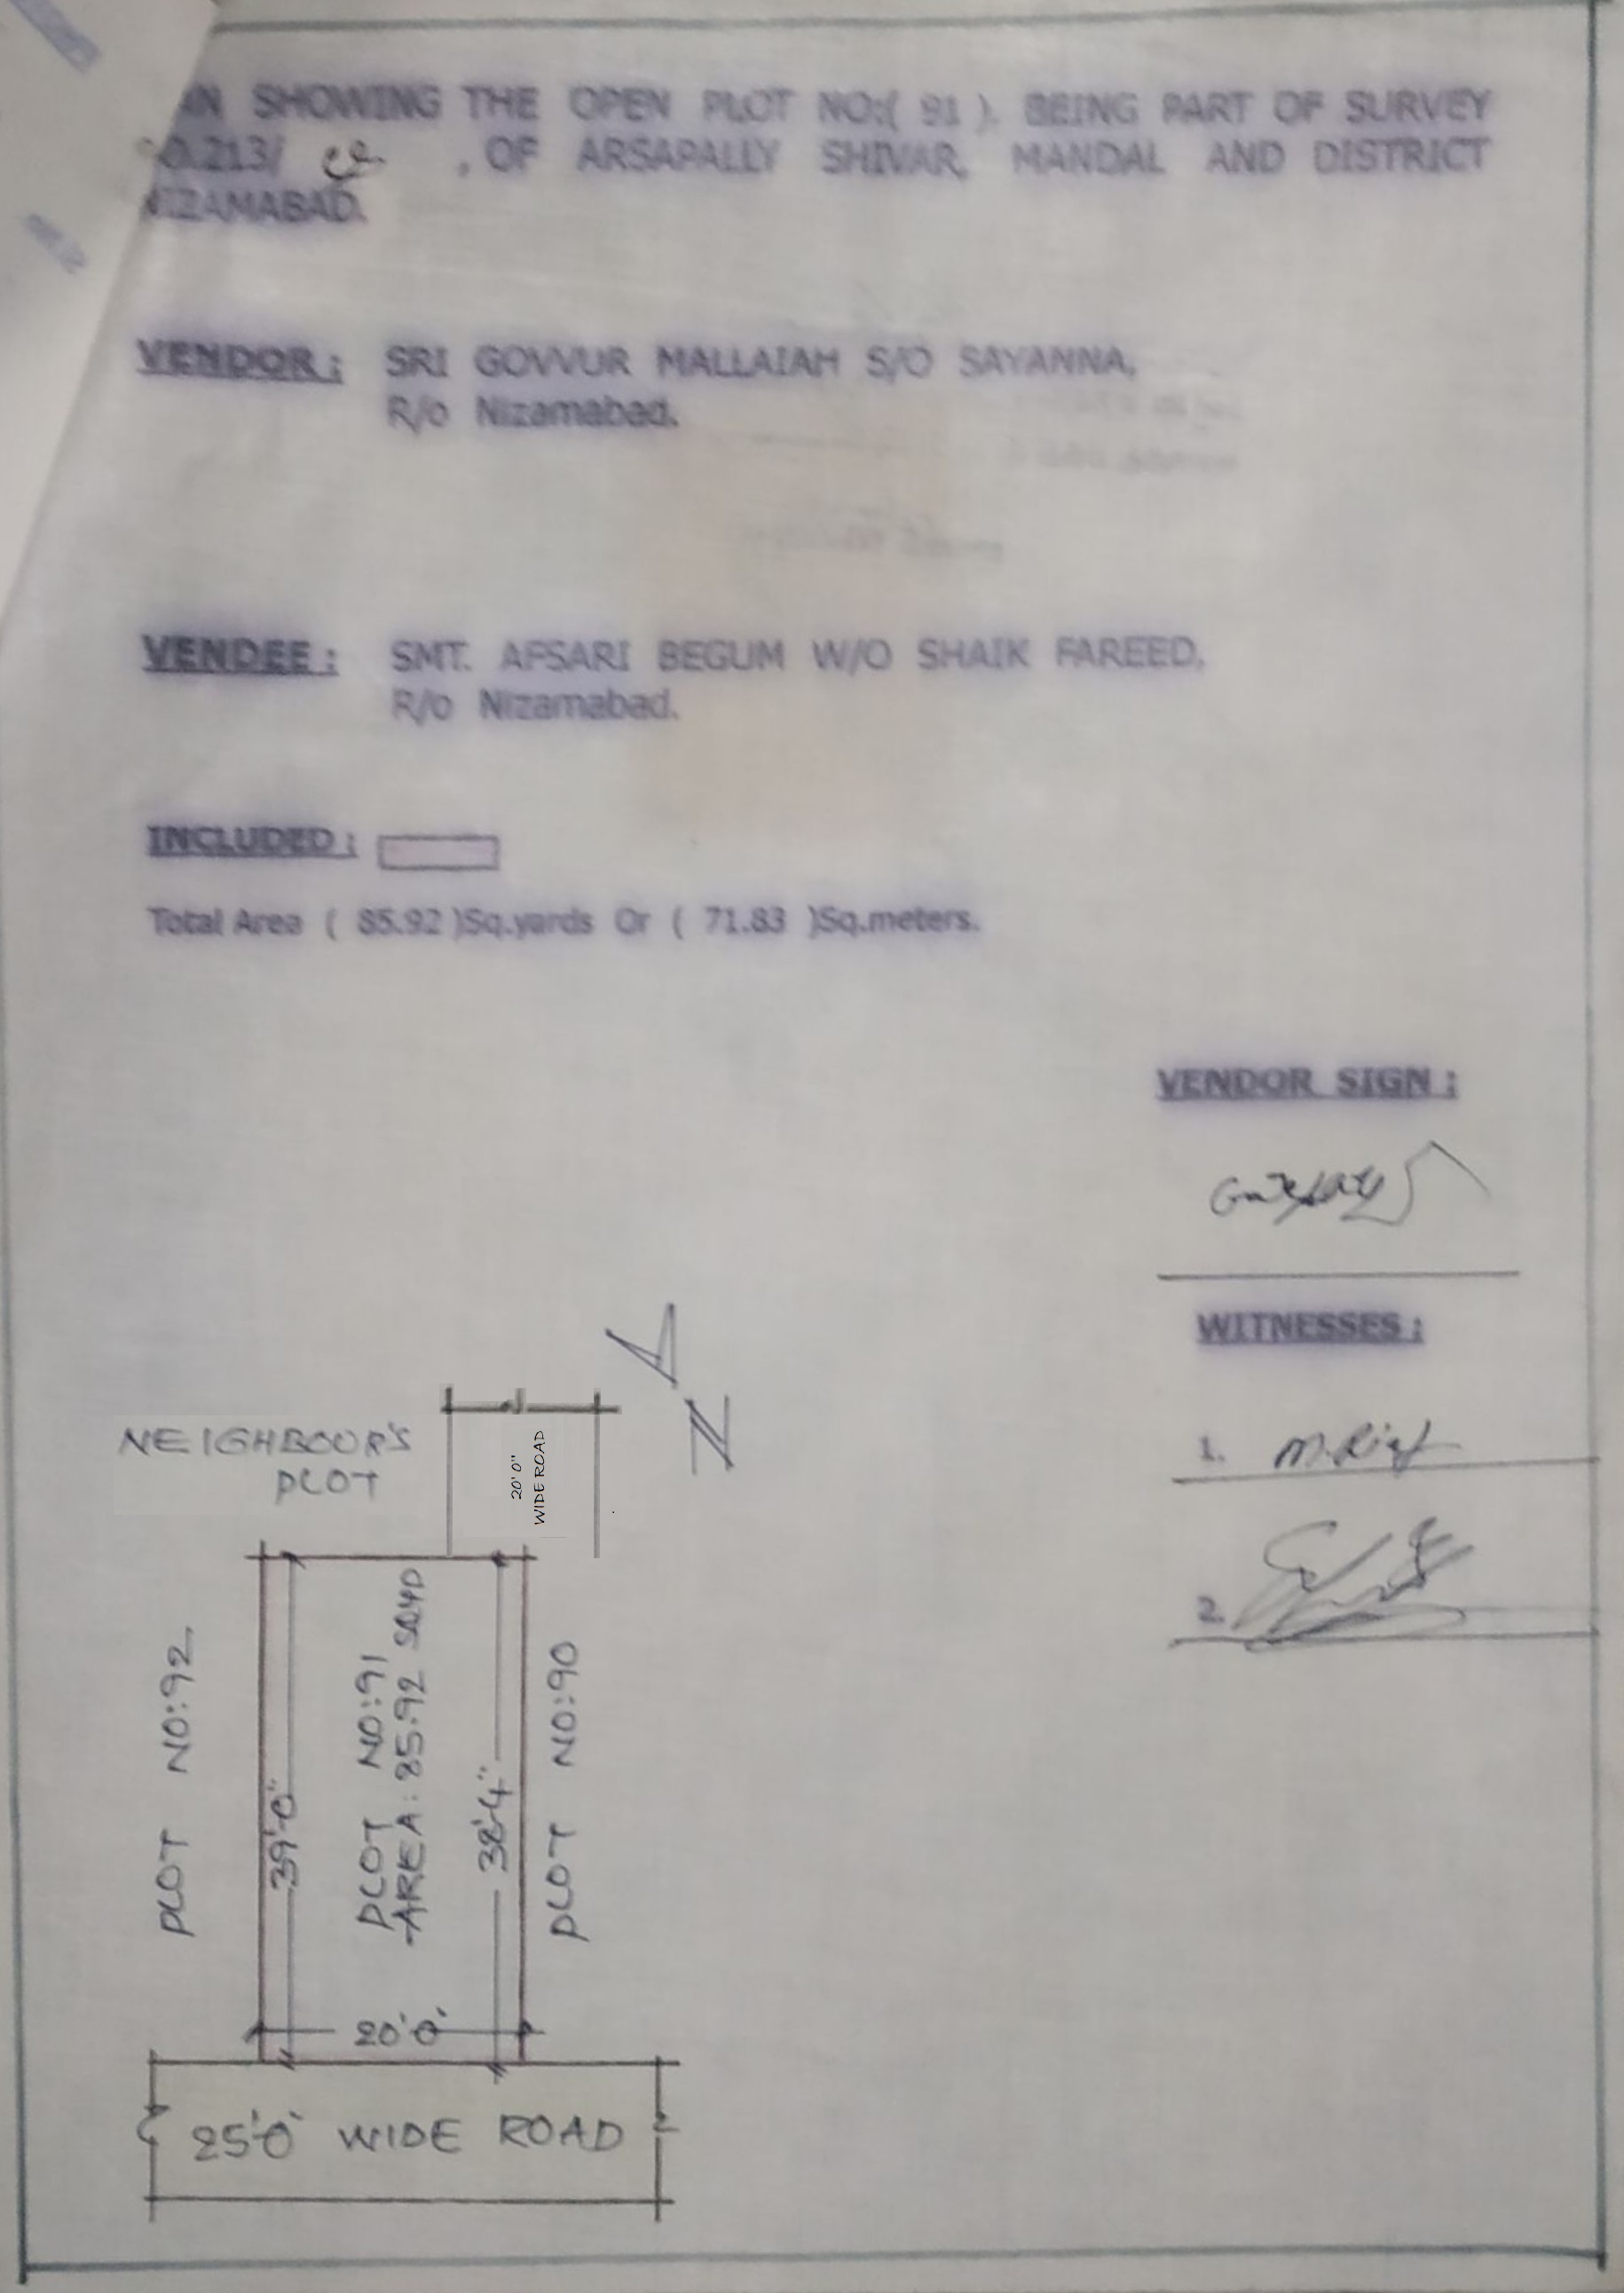 AN SHOWING THE OPEN PLOT NO:( 91 ). BEING PART OF SURVEY
O.213/ , OF ARSAPALLY SHIVAR, MANDAL AND DISTRICT
NIZAMABAD.
VENDOR : SRI GOVVUR MALLAIAH S/O SAYANNA,
R/o Nizamabad.
VENDEE : SMT. AFSARI BEGUM W/O SHAIK FAREED,
R/o Nizamabad.
INCLUDED :
Total Area ( 85.92 )Sq.yards Or ( 71.83 )Sq.meters.
VENDOR SIGN :
WITNESSES :
1.
2.
N
NEIGHBOUR'S
PLOT
20' 0"
WIDE ROAD
PLOT NO:92.
39'-0"
PLOT NO:91
AREA: 85.92 SQYD
38'-4"
PLOT NO:90
20'-0"
25'-0" WIDE ROAD